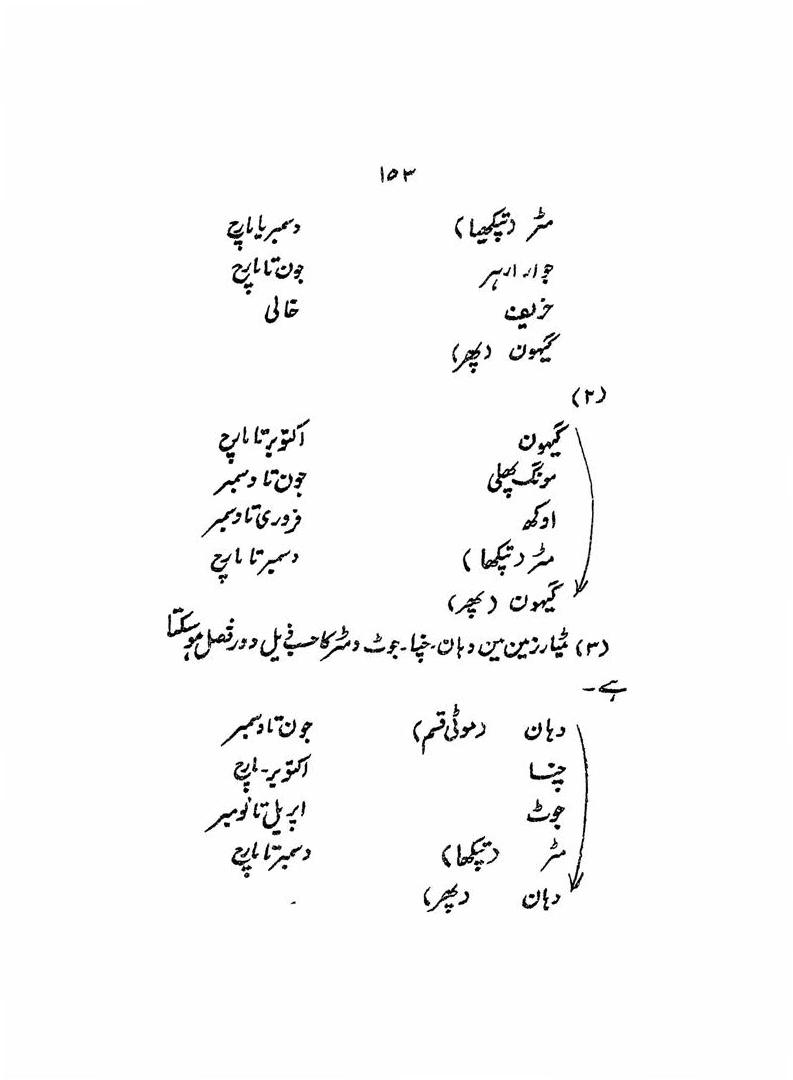 ۱۵۳
مٹر (تپکھیا) دسمبر یا مارچ
جوار ارہر جون تا مارچ
خریف خالی
گیہون (پھر)
(۲)
گیہون اکتوبر تا مارچ
مونگ پھلی جون تا دسمبر
اوکھ فروری تا دسمبر
مٹر (تپکھا) دسمبر تا مارچ
گیہون (پھر)
(۳) مٹیار زمین مین دہان۔ چنا۔ جوٹ و مٹر کا حسب ذیل دور فصل ہو سکتا
ہے۔
دہان (موٹی قسم) جون تا دسمبر
چنا اکتوبر۔ مارچ
جوٹ اپریل تا نومبر
مٹر (تپکھا) دسمبر تا مارچ
دہان (پھر)